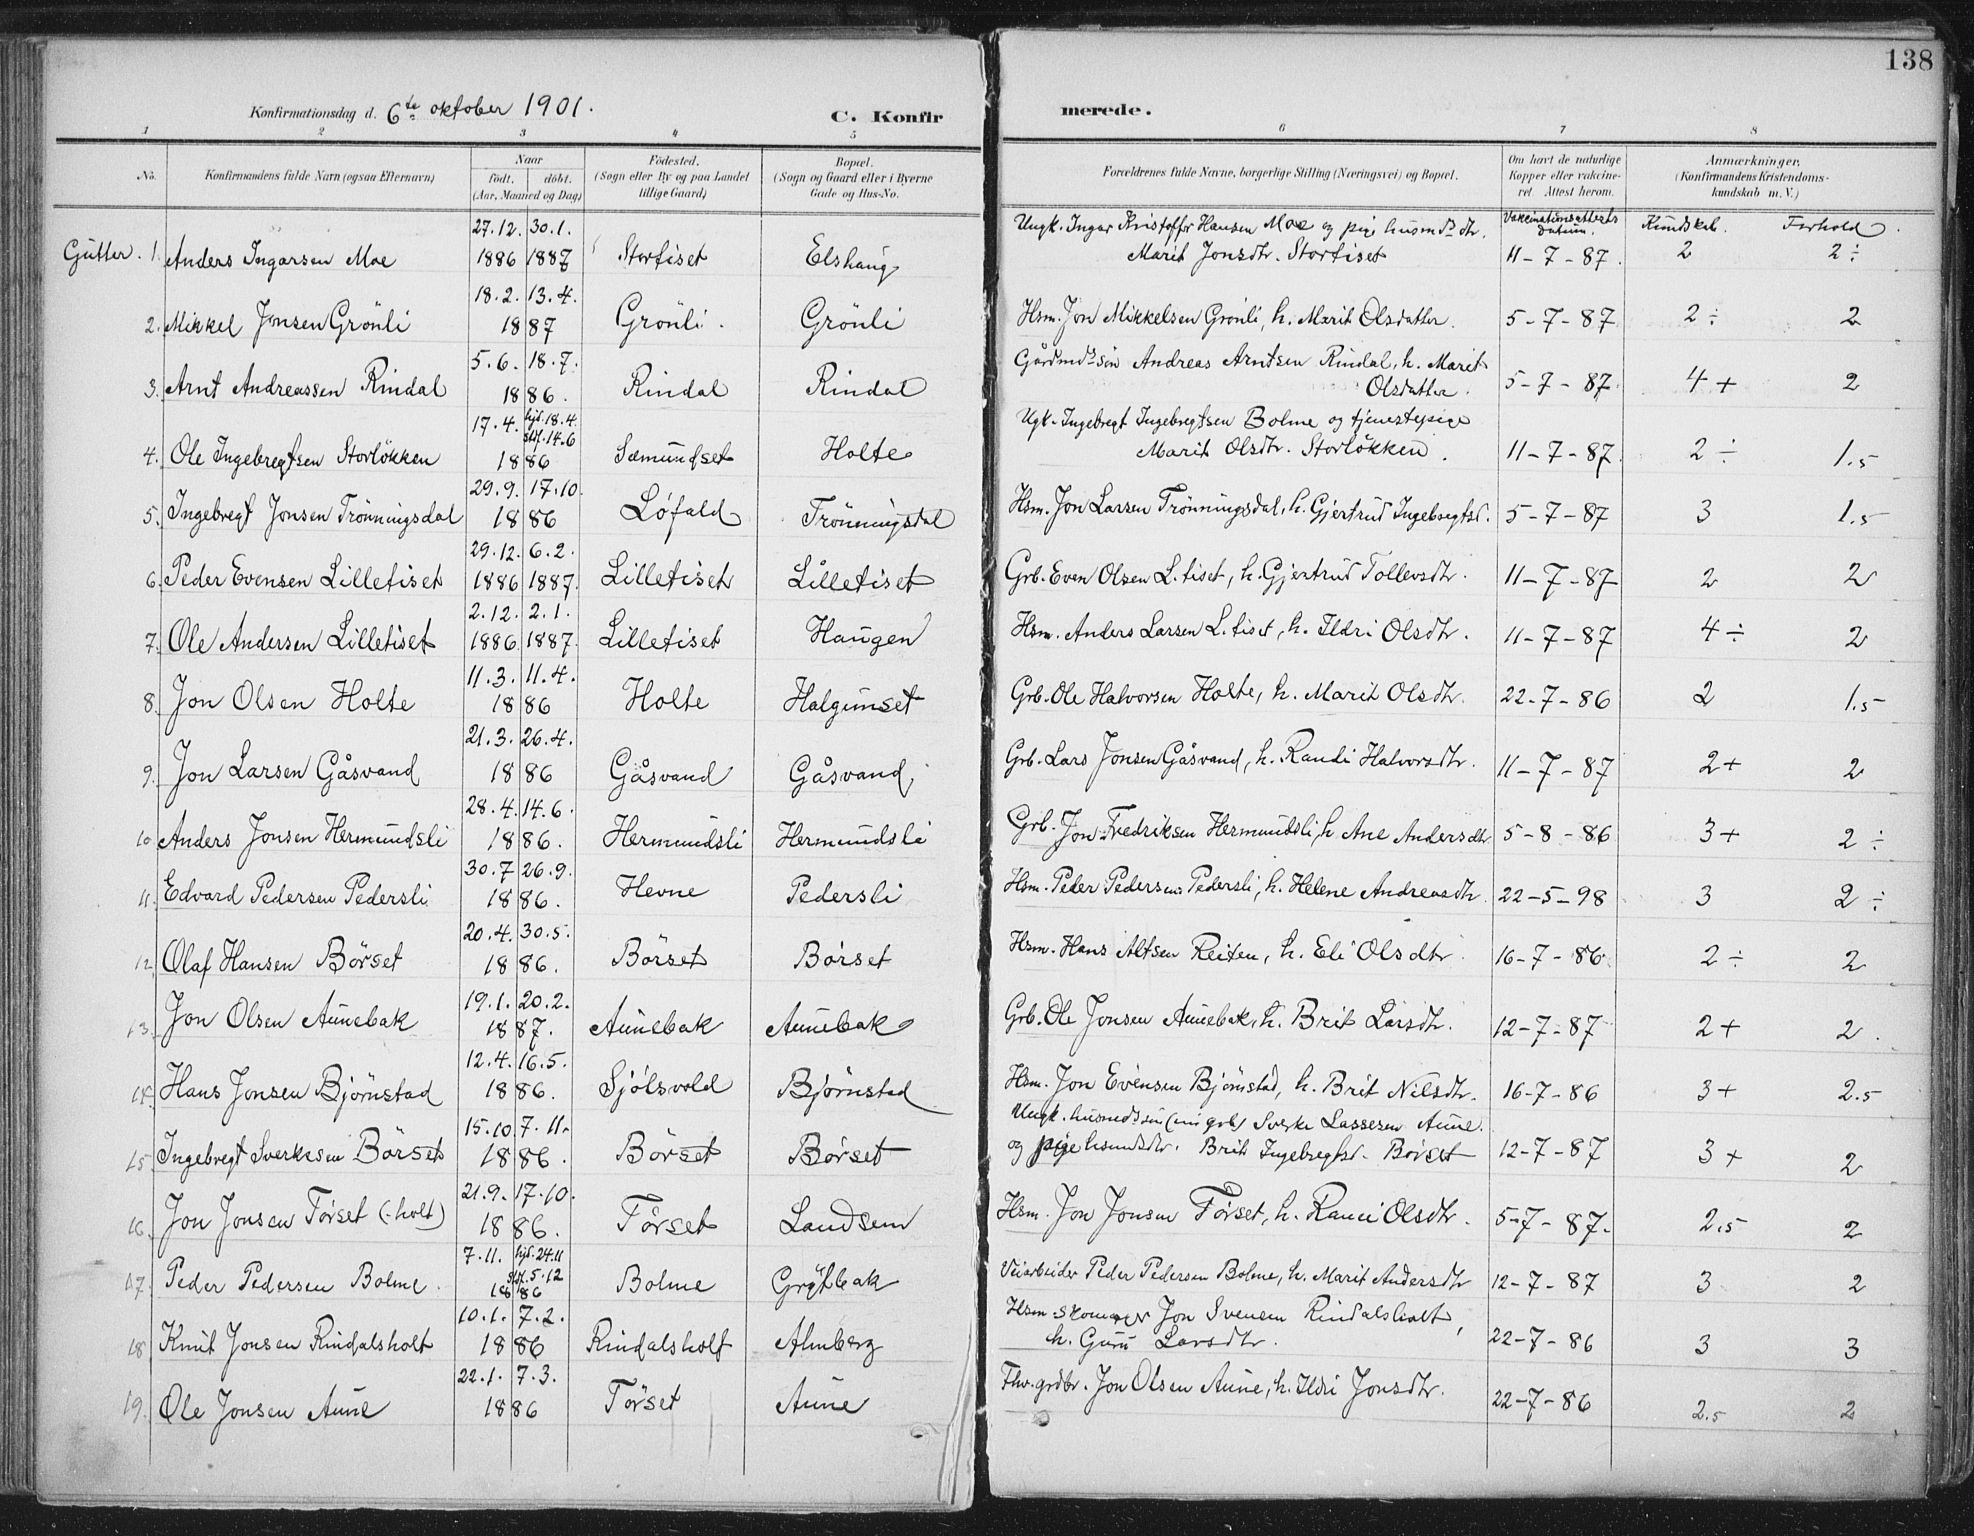 138
Konfirmationsdag d. 6te oktober 1901.
C. Konfirmerede.
1 2 3 4 5 6 7 8
No. Konfirmandens fulde Navn (ogsaa Efternavn) Naar født. døbt. (Aar, Maaned og Dag) Fødested. (Sogn eller By og paa Landet tillige Gaard) Bopæl. (Sogn og Gaard eller i Byerne Gade og Hus-No. Forældrenes fulde Navne, borgerlige Stilling (Næringsvei) og Bopæl. Om havt de naturlige Kopper eller vaccineret. Attest herom. Anmærkninger. (Konfirmandens Kristendomskundskab m. V.)
Vakcinationsattests Datum. Kundskab. Forhold.
Gutter. 1. Anders Ingarsen Moe 27.12. 1886 30.1. 1887 Stortiset Elshaug Ungk. Ingar Kristoffr Hansen Moe og pige husmds dtr. Marit Jonsdtr. Stortiset 11-7-87. 2 2÷
2. Mikkel Jonsen Grönli 18.2. 13.4. 1887 Grönli. Grönli Hsm. Jon Mikkelsen Grönli, h. Marit Olsdatter. 5-7-87 2÷ 2
3. Arnt Andreassen Rindal 5.6. 18.7. 1886. Rindal Rindal Gårdmds sön Andreas Arntsen Rindal, h. Marit Olsdatter. 5-7-87. 4+ 2
4. Ole Ingebregtsen Storlökken 17.4. hjd. 18.4. stf. 14.6 1886 Sæmundset Holte Ugk. Ingebregt Ingebregtsen Bolme og tjenestepige Marit Olsdtr. Storlökken. 11-7-87. 2÷ 1.5
5. Ingebregt Jonsen Trönningsdal 29.9. 17.10. 1886 Löfald Trönningsdal Hsm. Jon Larsen Trönningsdal, h. Gjertrud Ingebregtsd. 5-7-87 3 1.5
6. Peder Evensen Lilletiset 29.12. 1886 6.2. 1887. Lilletiset Lilletiset Grb. Even Olsen L.tiset, h. Gjertrud Tollevsdtr. 11-7-87 2 2
7. Ole Andersen Lilletiset 2.12. 1886 2.1. 1887. Lilletiset Haugen Hsm. Anders Larsen L.tiset, h. Ildri Olsdtr. 11-7-87 4÷ 2
8. Jon Olsen Holte 11.3. 11.4. 1886 Holte Halgunset Grb. Ole Halvorsen Holte, h. Marit Olsdtr. 22-7-86 2 1.5
9. Jon Larsen Gåsvand 21.3. 26.4. 1886 Gåsvand Gåsvand Grb. Lars Jonsen Gåsvand, h. Randi Halvorsdtr. 11-7-87 2+ 2
10 Anders Jonsen Hermundsli 28.4. 14.6. 1886. Hermundsli Hermundsli Grb. Jon Fredriksen Hermundsli, h Ane Andersdtr 5-8-86 3+ 2÷
11. Edvard Pedersen Pedersli 30.7 26.9. 1886. Hevne Pedersli Hsm. Peder Pedersen Pedersli, h. Helene Andreasdtr 22-5-98 3 2÷
12. Olaf Hansen Börset 20.4. 30.5. 1886. Börset Börset Hsm. Hans Altsen Reiten, h. Eli Olsdtr. 16-7-86 2÷ 2
13. Jon Olsen Aunebak 19.1. 20.2. 1887. Aunebak Aunebak Grb. Ole Jonsen Aunebak, h. Brit Larsdtr. 12-7-87 2+ 2.
14. Hans Jonsen Björnstad 12.4. 16.5. 1886. Sjölsvold Björnstad Hsm. Jon Evensen Björnstad, h. Brit Nilsdtr. 16-7-86 3+ 2.5
15 Ingebregt Sverkesen Börset 15.10. 7.11. 1886. Börset Börset Ungk. husmds sön (nu grb) Sverke Lassesen Aune. og pige husmdsdtr. Brit Ingebregtsd. Börset 12-7-87 3+ 2
16. Jon Jonsen Törset (-holt) 21.9. 17.10. 1886. Törset Landsem Hsm. Jon Jonsen Törset, h. Randi Olsdtr. 5-7-87. 2.5 2
17. Peder Pedersen Bolme. 7.11. hjd. 24.11 stf. 5.12 1886 Bolme Grytbak Veiarbeider Peder Pedersen Bolme, h. Marit Andersdtr 12-7-87 3 2
18. Knut Jonsen Rindalsholt 10.1. 7.2. 1886 Rindalsholt Almberg Hsm. skomager Jon Svensen Rindalsholt, h. Guru Larsdtr. 22-7-86 3 3
19. Ole Jonsen Aune 22.1. 7.3. 1886 Törset Aune Fhv. grdbr. Jon Olsen Aune, h. Ildri Jonsdtr. 22-7-86 2.5 2